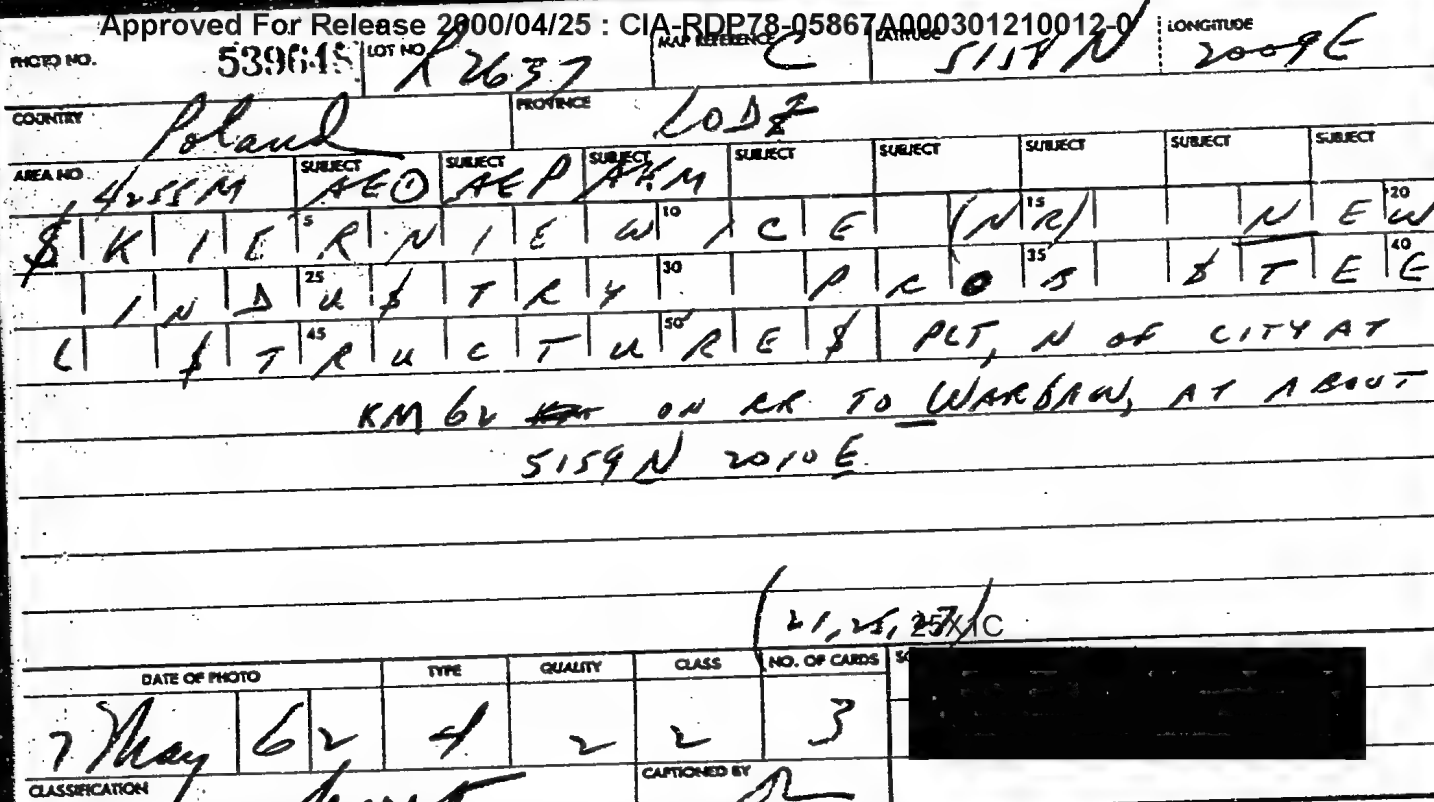 Approved For Release 2000/04/25 : CIA-RDP78-05867A000301210012-0
PHOTO NO. 539648 LOT NO. R2637 MAP REFERENCE C LATITUDE 5158 N LONGITUDE 2009 E
COUNTRY Poland PROVINCE LODZ
AREA NO. 4255M SUBJECT AEO SUBJECT AEP SUBJECT AHM SUBJECT SUBJECT SUBJECT SUBJECT SUBJECT
$KIERNIEWICE (NR) NEW
INDU$TRY PROB $TEE
L $TRUCTURE$ PLT, N OF CITY AT
KM 62 ON RR TO WARSAW, AT ABOUT
5159 N 2010 E
(21, 25, 27) 25X1C
DATE OF PHOTO TYPE QUALITY CLASS NO. OF CARDS
7 May 62 4 2 2 3
CLASSIFICATION CAPTIONED BY